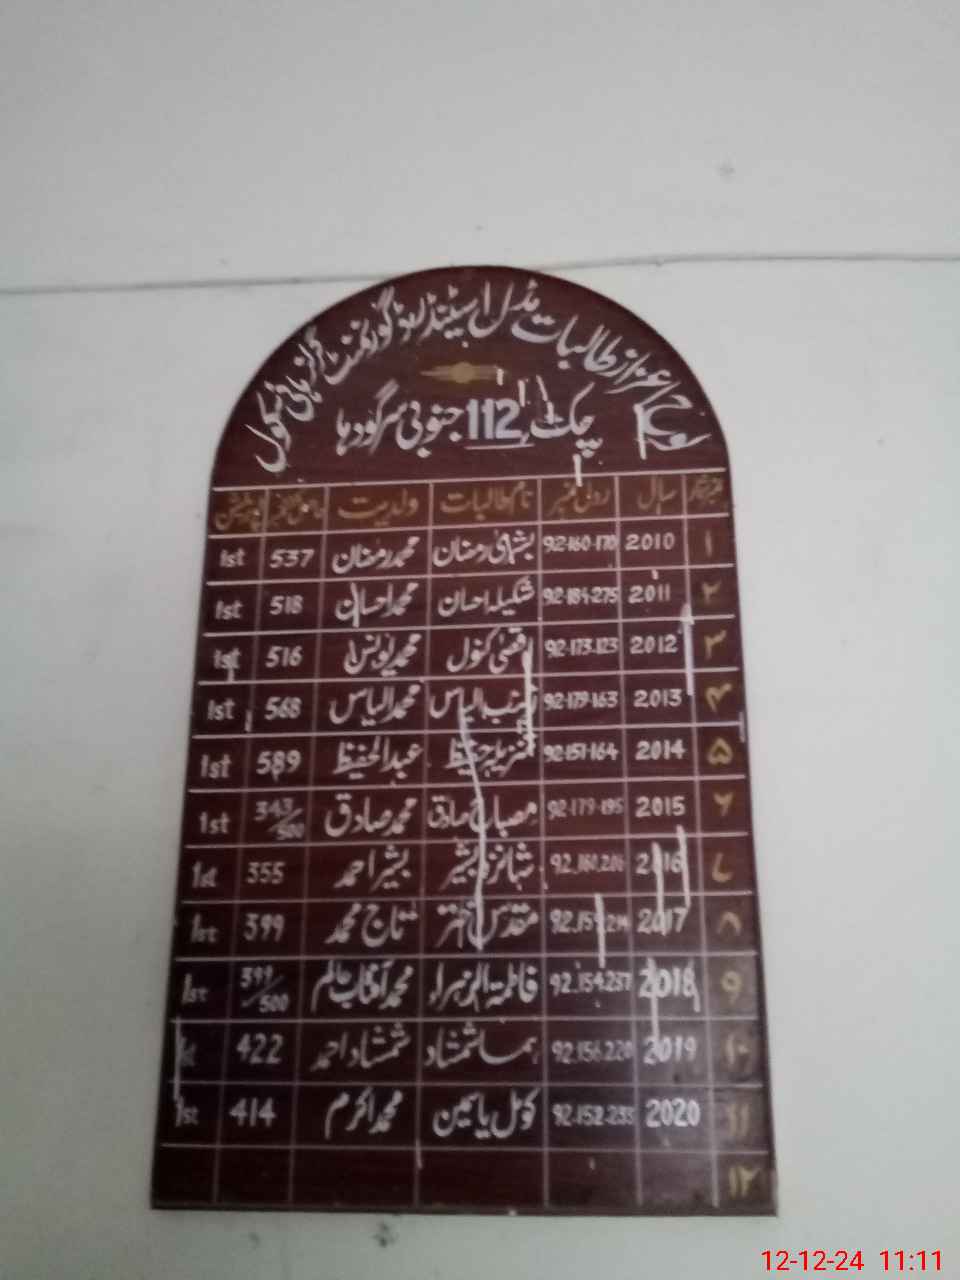 لوح اعزاز طالبات مڈل اسٹینڈرڈ گورنمنٹ گرلز ہائی سکول
چک 112 جنوبی سرگودہا
نمبر شمار سال رولنمبر نام طالبات ولدیت حاصل کردہ نمبر پوزیشن
۱ 2010 92-160-170 بشریٰ رمضان محمد رمضان 537 1st
۲ 2011 92-184-275 شکیلہ احسان محمد احسان 518 1st
۳ 2012 92-173-123 اقصیٰ کنول محمد یونس 516 1st
۴ 2013 92-179-163 زینب الیاس محمد الیاس 568 1st
۵ 2014 92-151-164 تنزیلہ حفیظ عبدالحفیظ 589 1st
۶ 2015 92-179-195 مصباح صادق محمد صادق 343/500 1st
۷ 2016 شانزہ بشیر بشیر احمد 355 1st
۸ 2017 مقدس اختر تاج محمد 399 1st
۹ 2018 92.154.237 فاطمۃ الزہراء محمد آفتاب عالم 399/500 1st
۱۰ 2019 92.156.220 ہما شمشاد شمشاد احمد 422 1st
۱۱ 2020 92-152-233 کومل یاسمین محمد اکرم 414 1st
۱۲
12-12-24 11:11